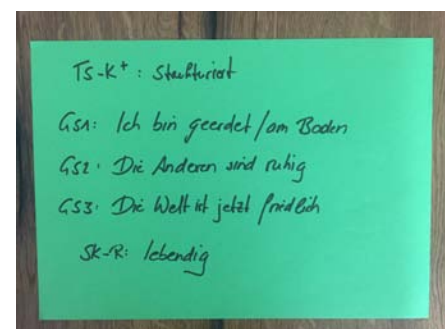 TS-K+: Strukturiert
GS1: Ich bin geerdet/am Boden
GS2: Die Anderen sind ruhig
GS3: Die Welt ist jetzt friedlich
SK-R: lebendig